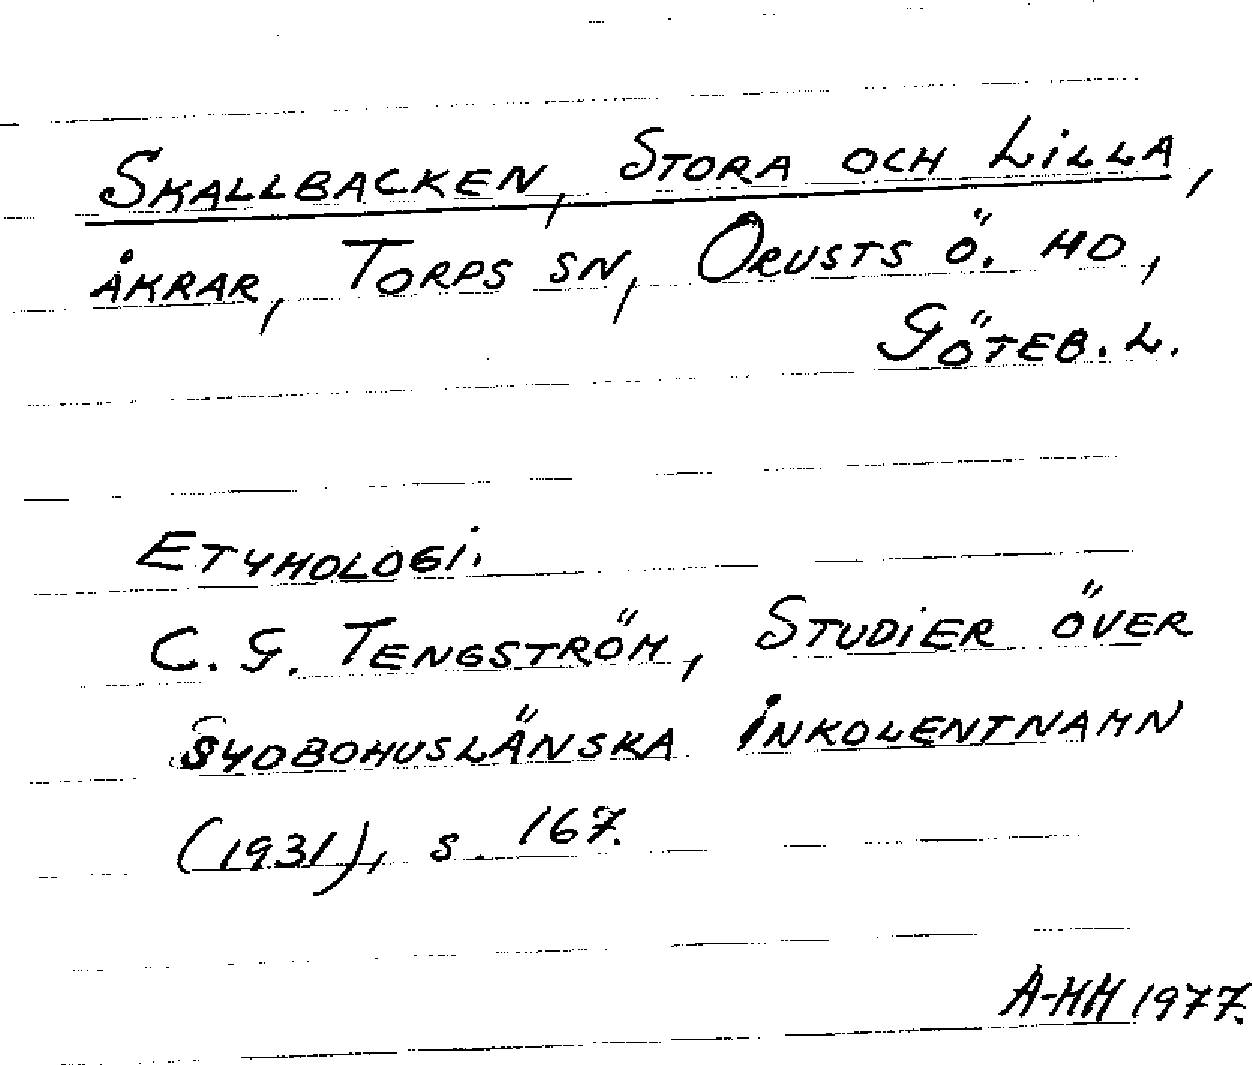 SKALLBACKEN, STORA OCH LILLA,
ÅKRAR, TORPS SN, ORUSTS Ö. HD,
GÖTEB. L.
ETYMOLOGI.
C. G. TENGSTRÖM, STUDIER ÖVER
SYDBOHUSLÄNSKA INKOLENTNAMN
(1931), s. 167.
A-HM 1977.